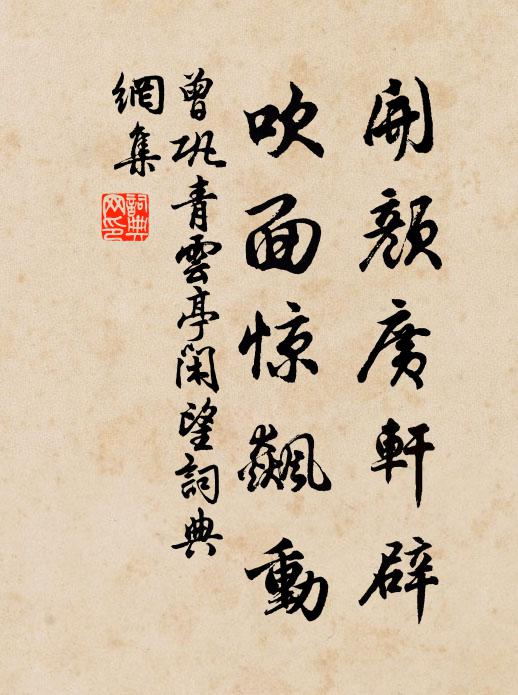 開顏廣軒辟
吹面惊飆動
曾巩青雲亭閑望詞典
網集
詞典
网印